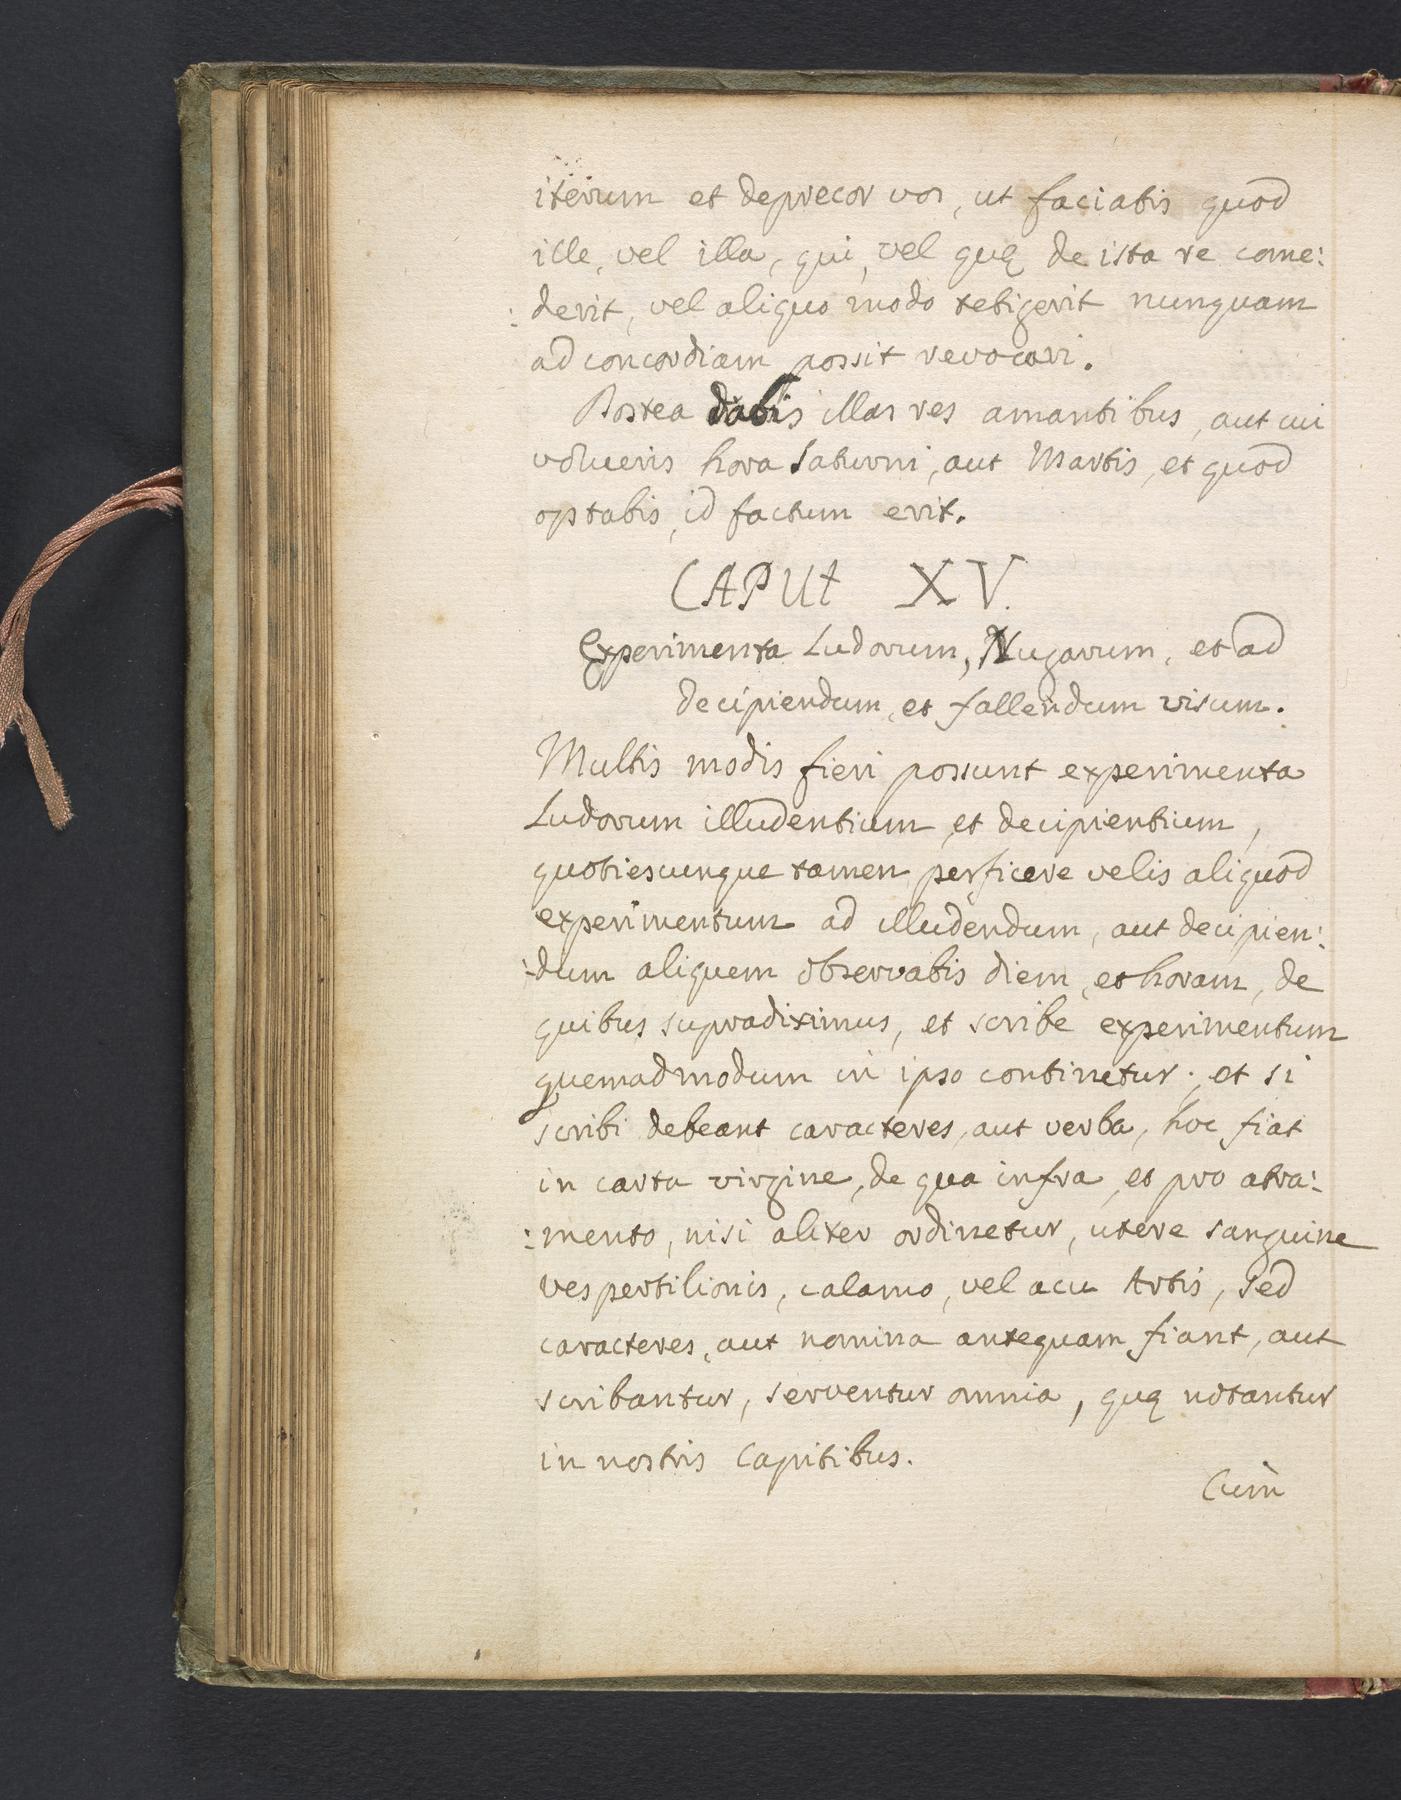 iterum et deprecor vos, ut faciatis quod
ille, vel illa, qui, vel quę de ista re come:
:derit, vel aliquo modo tetigerit nunquam
ad concordiam possit revocari.
Postea dabis illas res amantibus, aut cui
volueris hora Saturni, aut Martis, et quod
optabis, id factum erit.
CAPUt XV.
Experimenta Ludorum, Nugarum, et ad
decipiendum, et fallendum visum.
Multis modis fieri possunt experimenta
Ludorum illudentium, et decipientium,
quotiescunque tamen perficere velis aliquod
experimentum ad illudendum, aut decipien:
:dum aliquem observabis diem, et horam, de
quibus supradiximus, et scribe experimentum
quemadmodum in ipso continetur; et si
scribi debeant caracteres, aut verba, hoc fiat
in carta virgine, de qua infra, et pro atra:
:mento, nisi aliter ordinetur, utere sanguine
vespertilionis, calamo, vel acu Artis, sed
caracteres, aut nomina antequam fiant, aut
scribantur, serventur omnia, quę notantur
in nostris Capitibus.
Cum